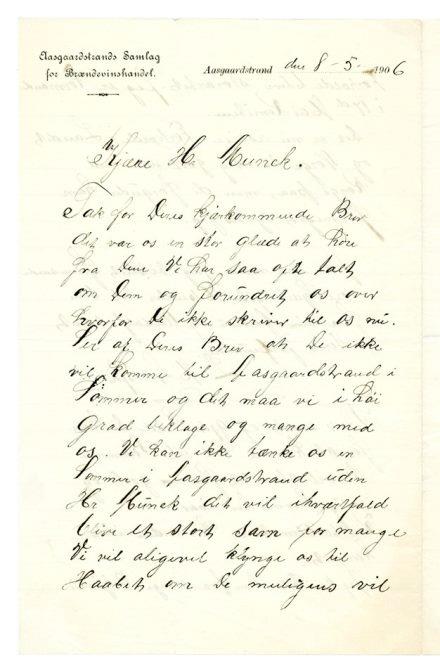 Aasgaardstrands Samlag
for Brændevinshandel.
Aasgaardstrand den 8-5- 1906
Kjære Hr Munck.
Tak for Deres kjærkommende Brev
det var os en stor glæde at høre
fra Dem. Vi har saa ofte talt
om Dem og forundret os over
hvorfor De ikke skriver til os nu.
Ser af Deres Brev at De ikke
vil komme til Aasgaardstrand i
Sommer og det maa vi i høi
Grad beklage og mange med
os. Vi kan ikke tænke os en
Sommer i Aasgaardstrand uden
Hr Munck det vil ihværtfald
blive et stort savn for mange
Vi vil aligevel klynge os til
Haabet om De muligens vil